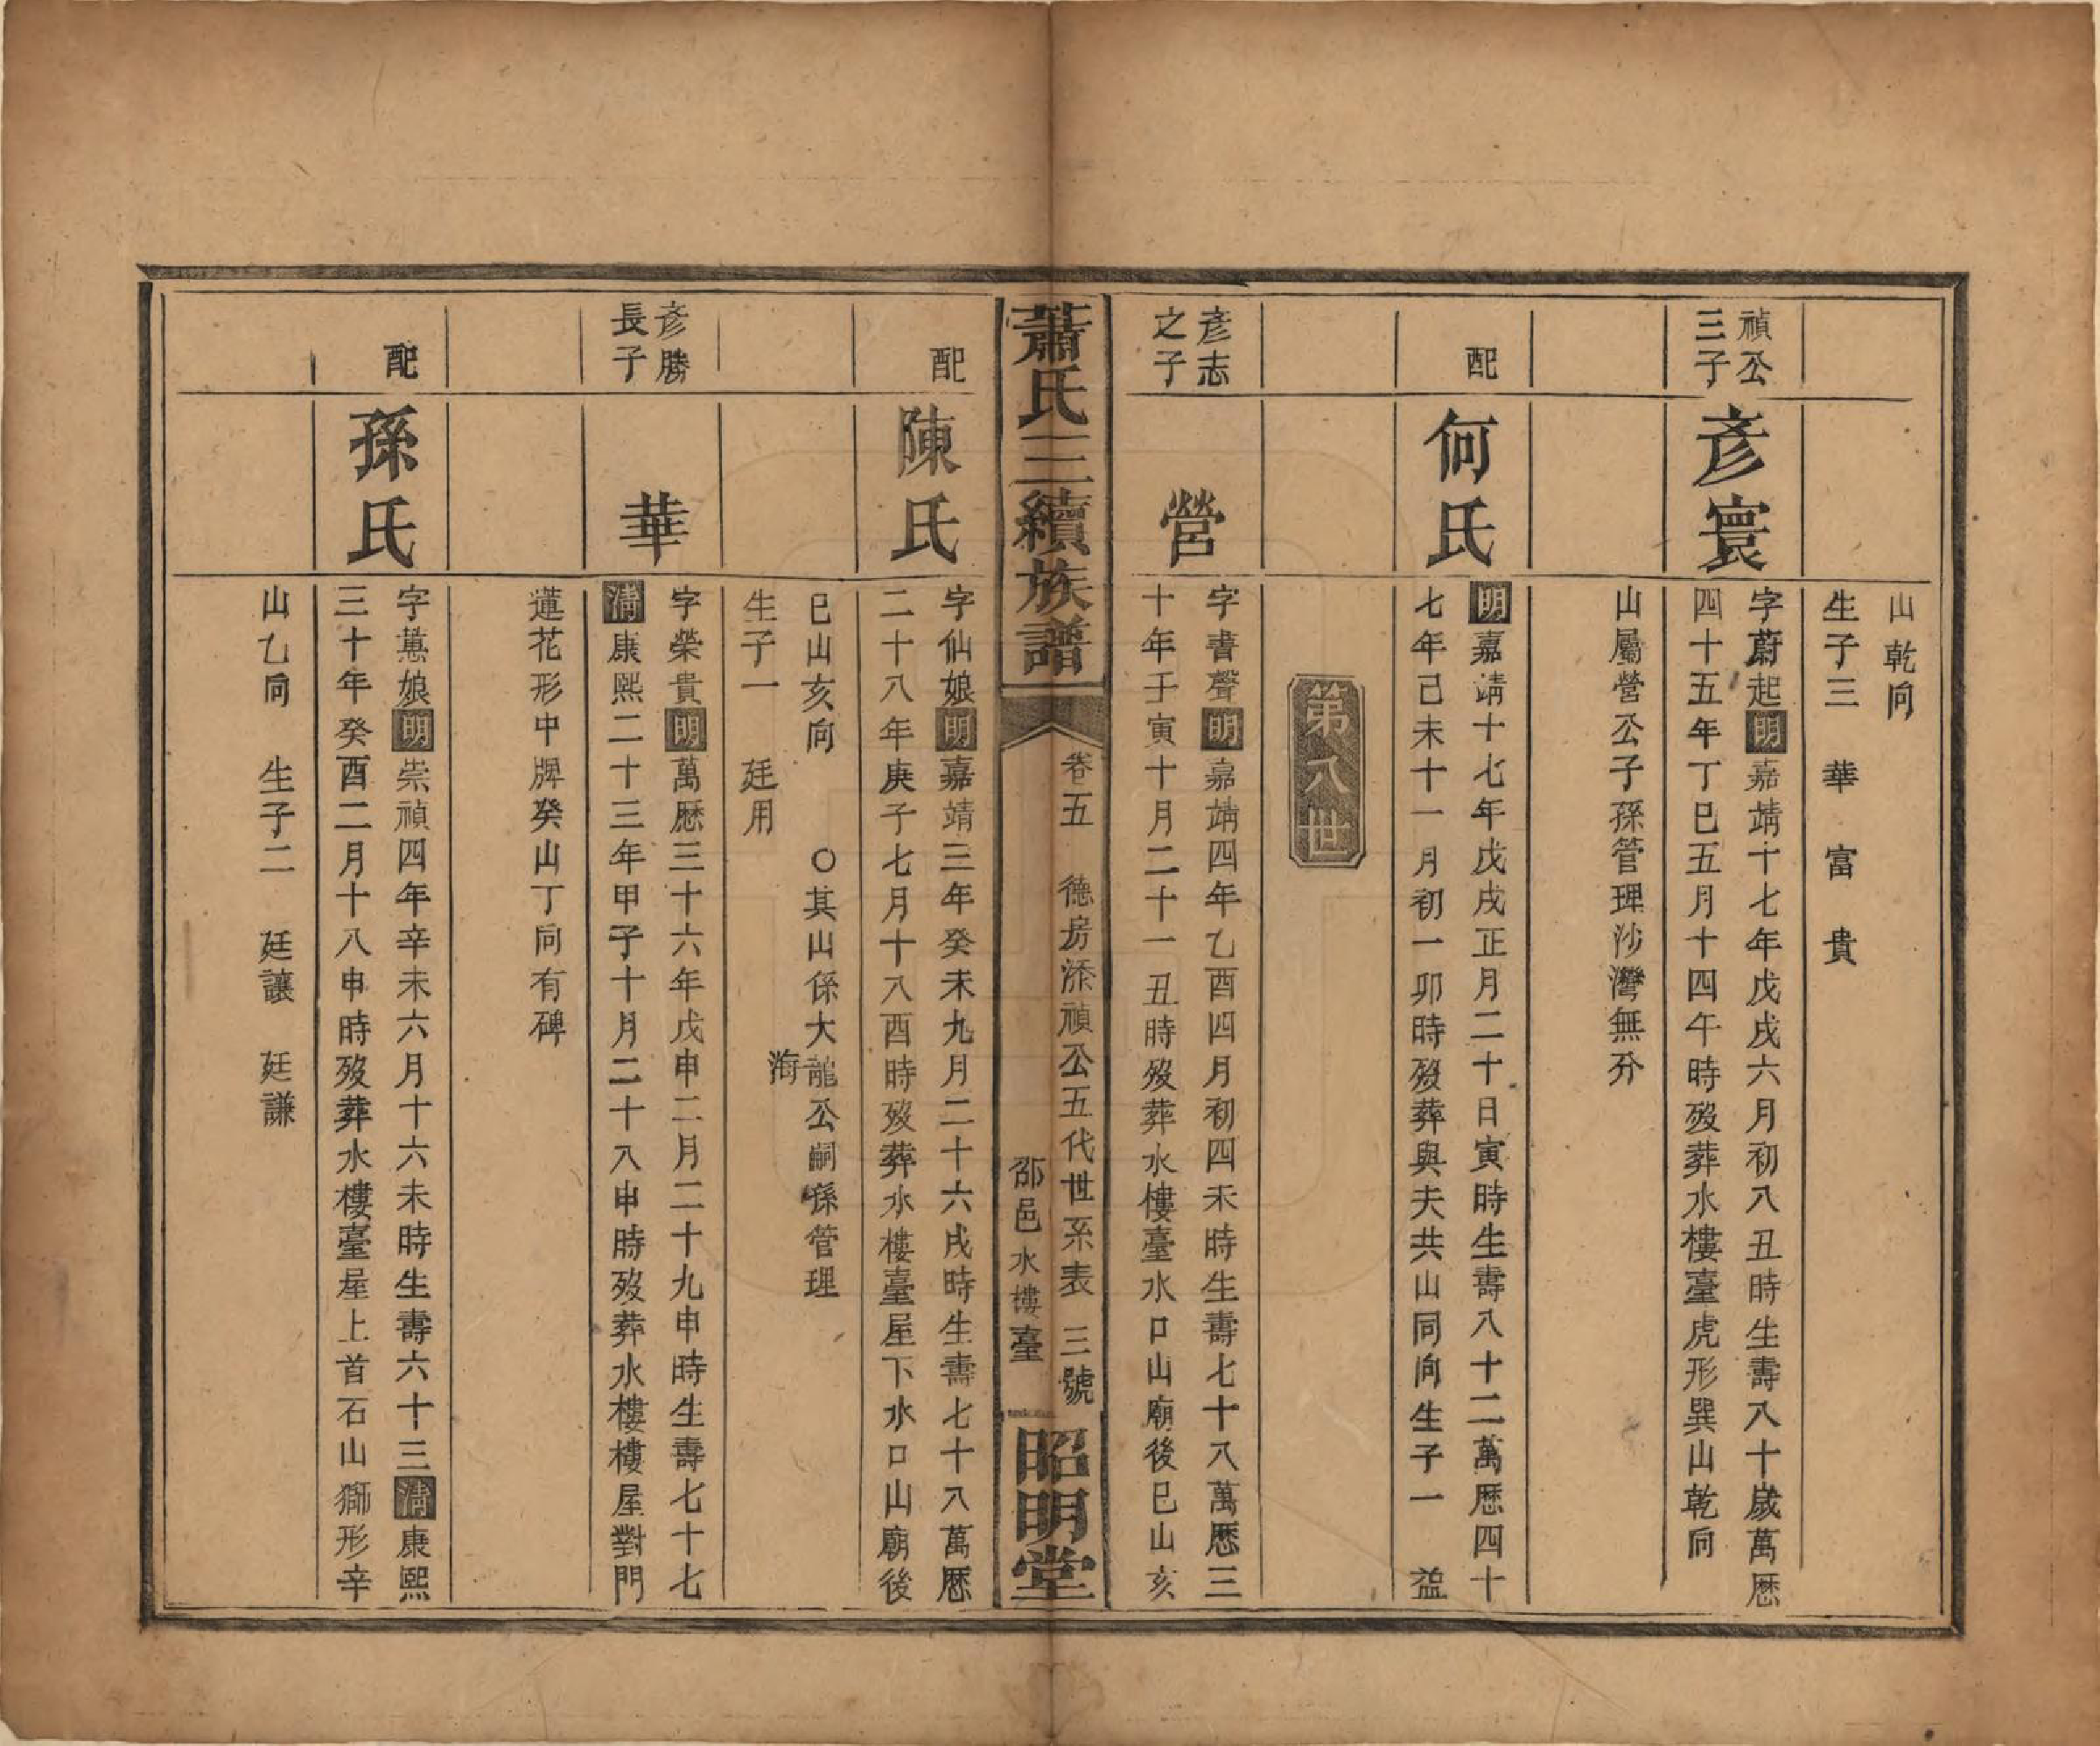 山乾向
生子三　華　富　貴
禎公
三子
彥寰
字蔚起明嘉靖十七年戊戌六月初八丑時生壽八十歲萬歷
四十五年丁巳五月十四午時歿葬水樓臺虎形巽山乾向
山屬營公子孫管理沙灣無分
配
何氏
明嘉靖十七年戊戌正月二十日寅時生壽八十二萬歷四十
七年己未十一月初一卯時歿葬與夫共山同向生子一　益
第八世
彥志
之子
營
字書聲明嘉靖四年乙酉四月初四未時生壽七十八萬歷三
十年壬寅十月二十一丑時歿葬水樓臺水口山廟後巳山亥
蕭氏三續族譜
卷五　德房添禎公五代世系表　三號
邵邑水樓臺
昭明堂
配
陳氏
字仙娘明嘉靖三年癸未九月二十六戌時生壽七十八萬歷
二十八年庚子七月十八酉時歿葬水樓臺屋下水口山廟後
巳山亥向　○其山係大龍公嗣孫管理
海
生子一　廷用
彥勝
長子
華
字榮貴明萬歷三十六年戊申二月二十九申時生壽七十七
清康熙二十三年甲子十月二十八申時歿葬水樓樓屋對門
蓮花形中牌癸山丁向有碑
配
孫氏
字蕙娘明崇禎四年辛未六月十六未時生壽六十三清康熙
三十年癸酉二月十八申時歿葬水樓臺屋上首石山獅形辛
山乙向　生子二　廷讓　廷謙